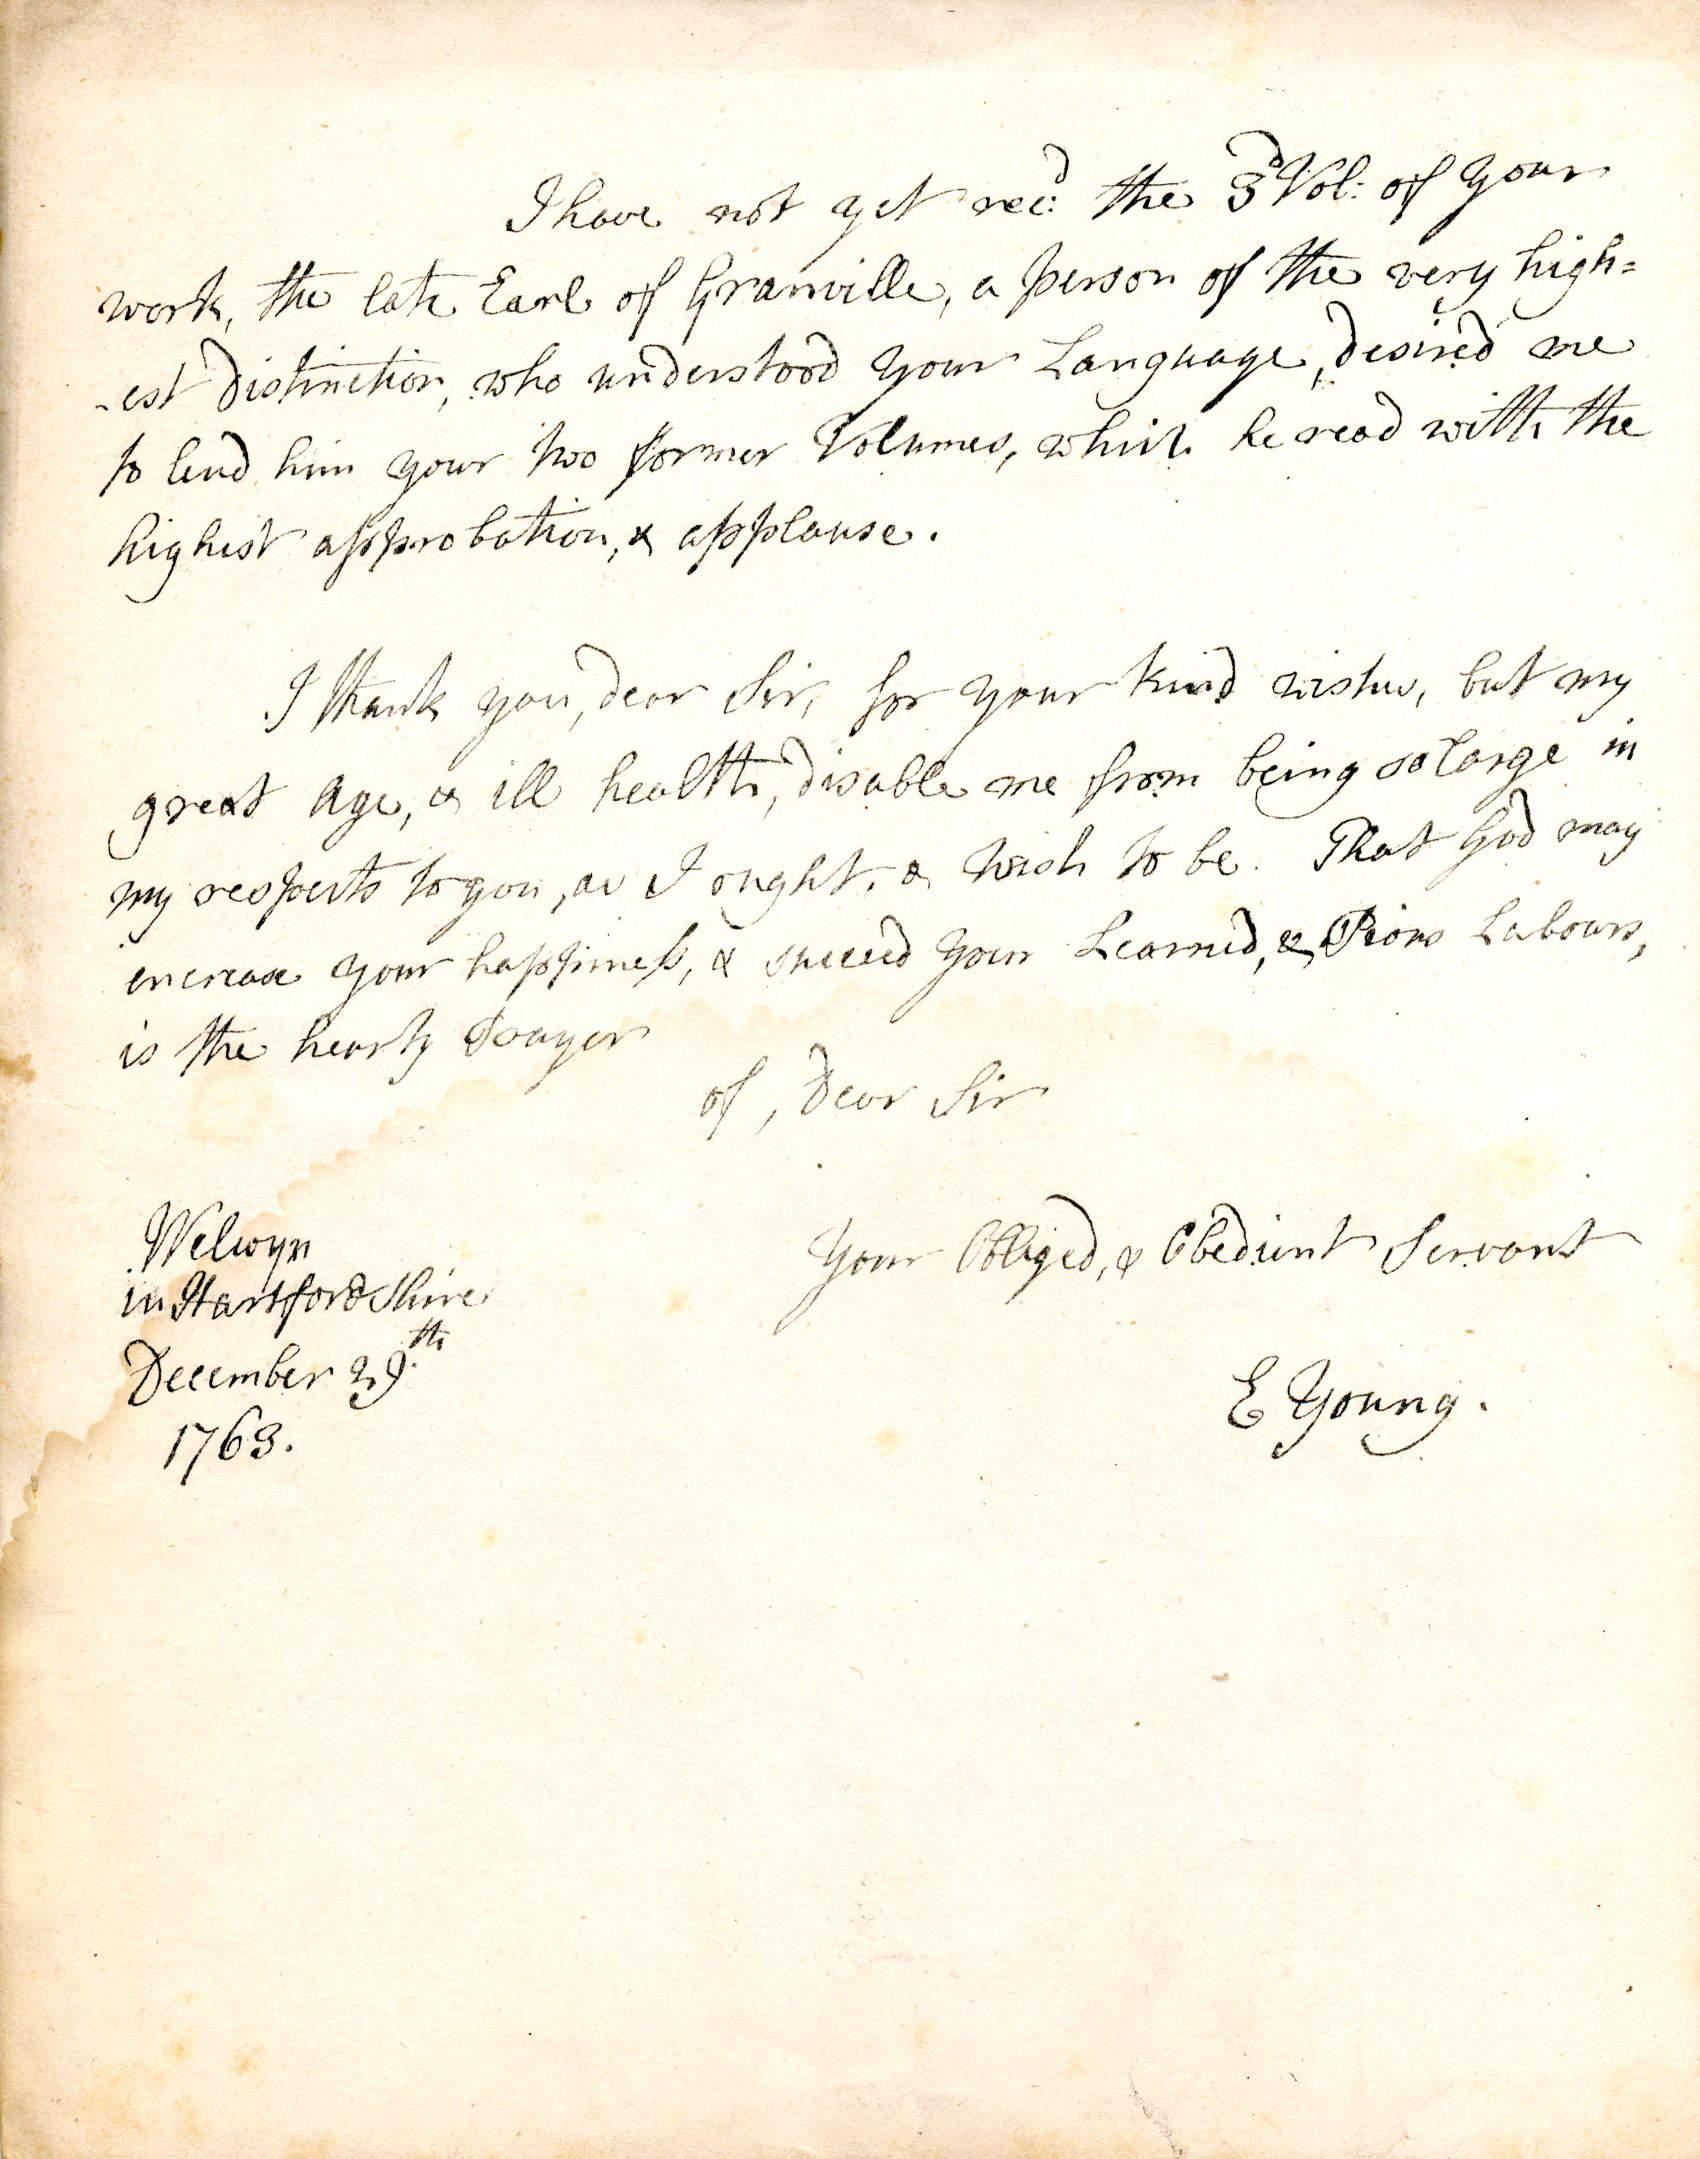 I have not yet rec:d the 3d Vol: of your
work, the late Earl of Granville, a person of the very high=
-est distinction, who understood your Language, desired me
to lend him your two former Volumes, which he read with the
highest approbation, & applause.
I thank you, dear Sir, for your kind wishes, but my
great Age, & ill health, disable me from being so large in
my respects to you, as I ought, & wish to be. That God may
encrease your happiness, & succeed your Learned, & Pious Labours,
is the hearty Prayer
of, Dear Sir
Your Obliged, & Obedient Servant
E Young.
Welwyn
in Hartford Shire
December 29.th
1763.